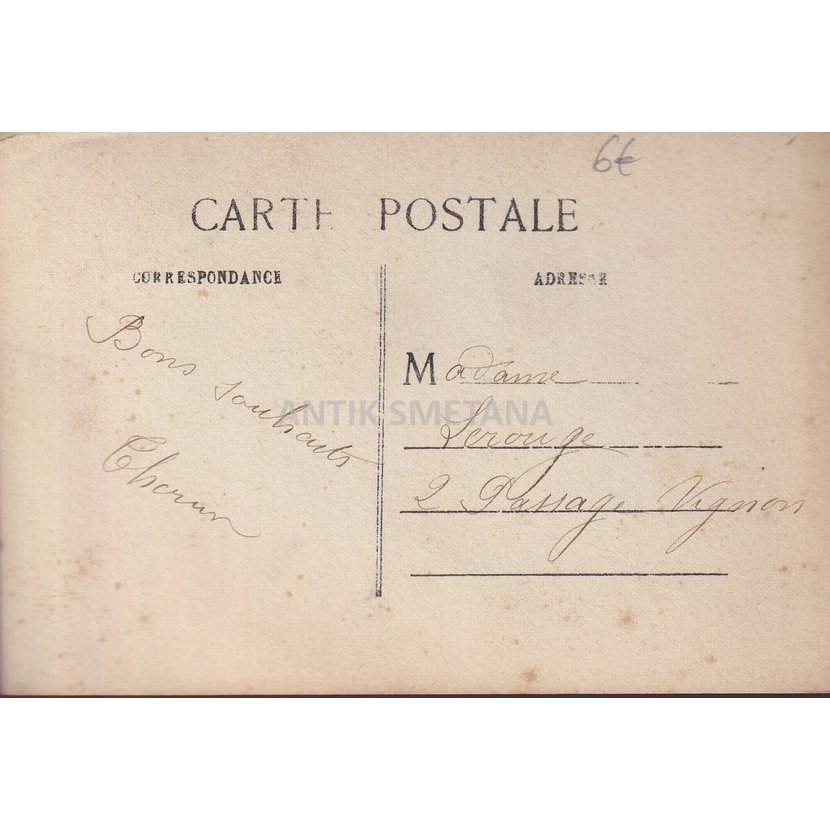 6€
CARTE POSTALE
CORRESPONDANCE
ADRESSE
Bons souhaits
Madame
Lerouge
2 Passage Vignon
ANTIK SMETANA